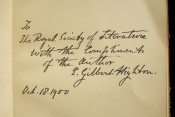 To
The Royal Society of Literature
with the Compliments
of the Author
E. Gilbert Highton.
Oct. 18. 1900